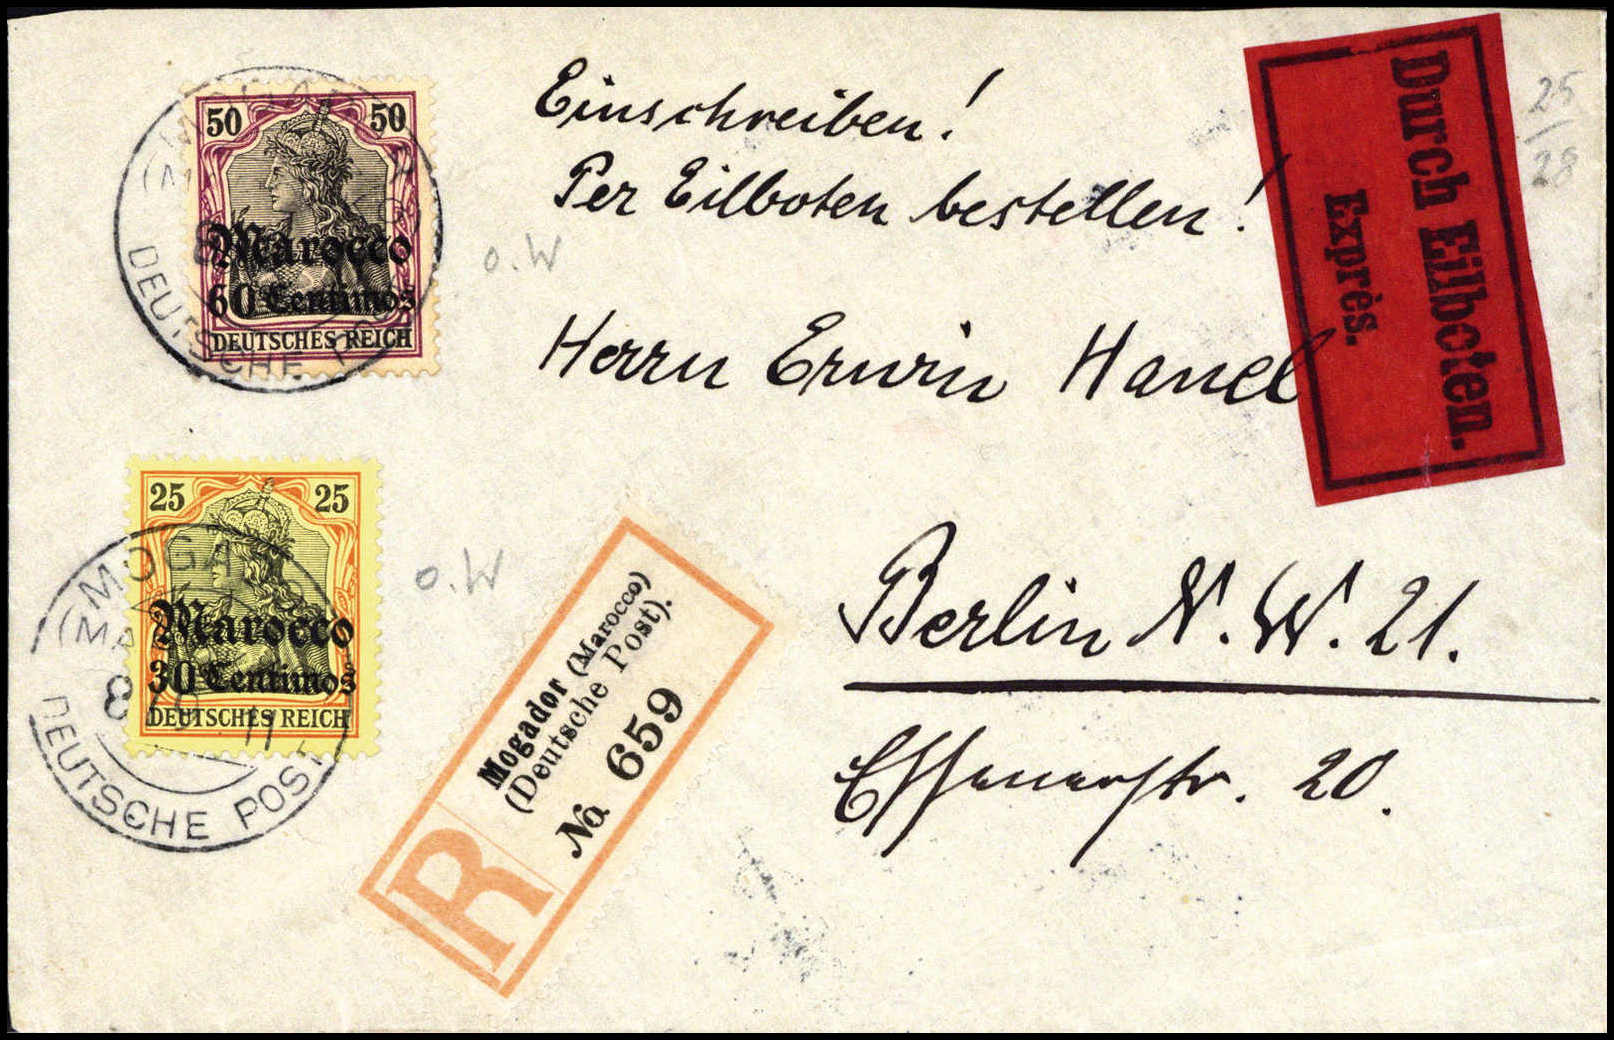 50 50
Marocco
60 Centimos
DEUTSCHES REICH
DEUTSCHE
o.W
Einschreiben!
Per Eilboten bestellen!
Durch Eilboten.
Exprès.
25
28
Herrn Erwin Hanel
25 25
Marocco
30 Centimos
DEUTSCHES REICH
DEUTSCHE POST
o.W
Mogador (Marocco)
(Deutsche Post).
No. 659
R
Berlin N.W. 21.
Essenerstr. 20.